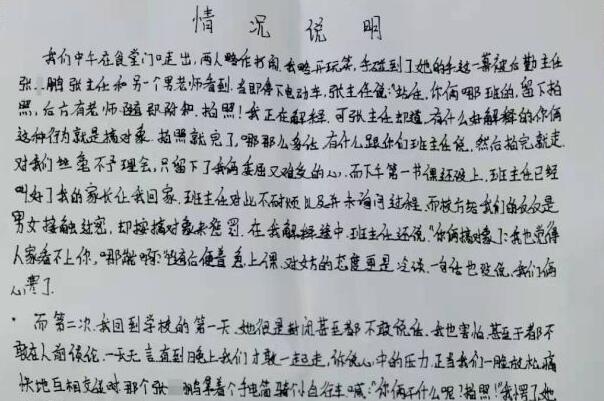 情况说明
我们中午在食堂门口走出,两人略作打闹,我略开玩笑,手碰到了她的手这一幕被后勤主任
张 鹏张主任和另一个男老师看到.当即停下电动车,张主任说:"站住,你俩哪班的,留下拍
照,后方有老师随即附和,拍照!我正在解释,可张主任却道,有什么好解释的你俩
这种行为就是搞对象.拍照就完了,哪那么多话,有什么跟你们班主任说,然后拍完就走.
对我们丝毫不予理会,只留下了我俩委屈又难受的心.而下午第一节课还没上,班主任已经
叫好了我的家长让我回家,班主任对此不耐烦以及并未询问过程,而校方给我们的仅仅是
男女接触过密,却按搞对象来惩罚.在我解释途中,班主任还说."你俩搞对象?我也觉得
人家看不上你,啊"随后便着急上课,对姑的态度更是冷淡.一句话也没说,我们俩
心寒了.
·而第二次,我回到学校的第一天,她很是封闭甚至都不敢说话,我也害怕,甚至于都不
敢在人前谈论,一天无言直到晚上我们才敢一起走,诉说心中的压力,正当我们一脸放松,痛
快地互相交谈时,那个张 鹏拿着个手电筒骑个自行车喊:"你俩干什么呢!拍照!"我愣了她